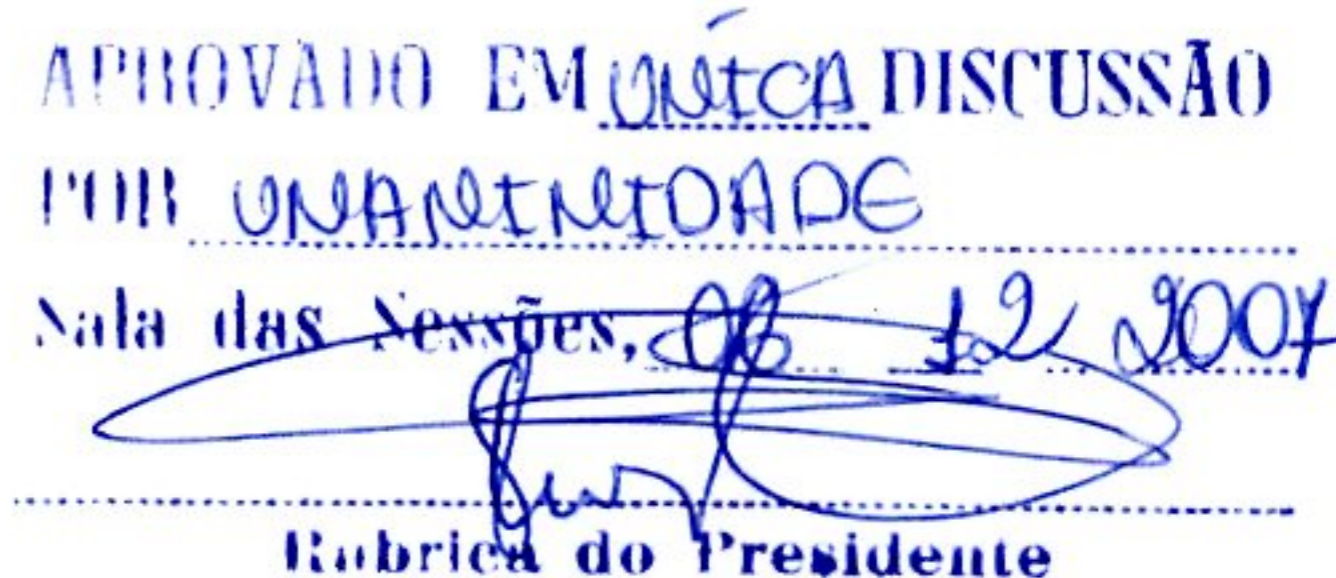 APROVADO EM ÚNICA DISCUSSÃO
POR UNANIMIDADE
Sala das Sessões, 12 2007
Rubrica do Presidente